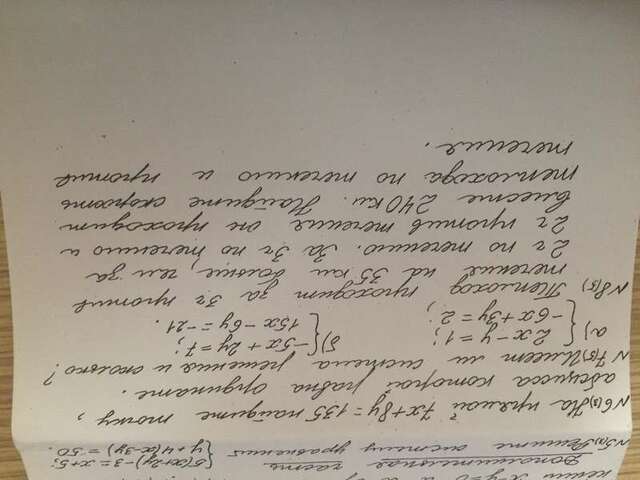 Дополнительная часть
№5(3) Решите систему уравнений {5(x+2y)-3=x+5;
y+4(x-3y)=50.
№6(3) На прямой 7x+8y=135 найдите точку,
абсцисса которой равна ординате.
№7(5) Имеет ли система решения и сколько?
а) {2x-y=1; б) {-5x+2y=7;
-6x+3y=2; 15x-6y=-21.
№8(5) Теплоход проходит за 3ч против
течения на 35 км больше, чем за
2ч по течению. За 3ч по течению и
2ч против течения он проходит
вместе 240 км. Найдите скорость
теплохода по течению и против
течения.